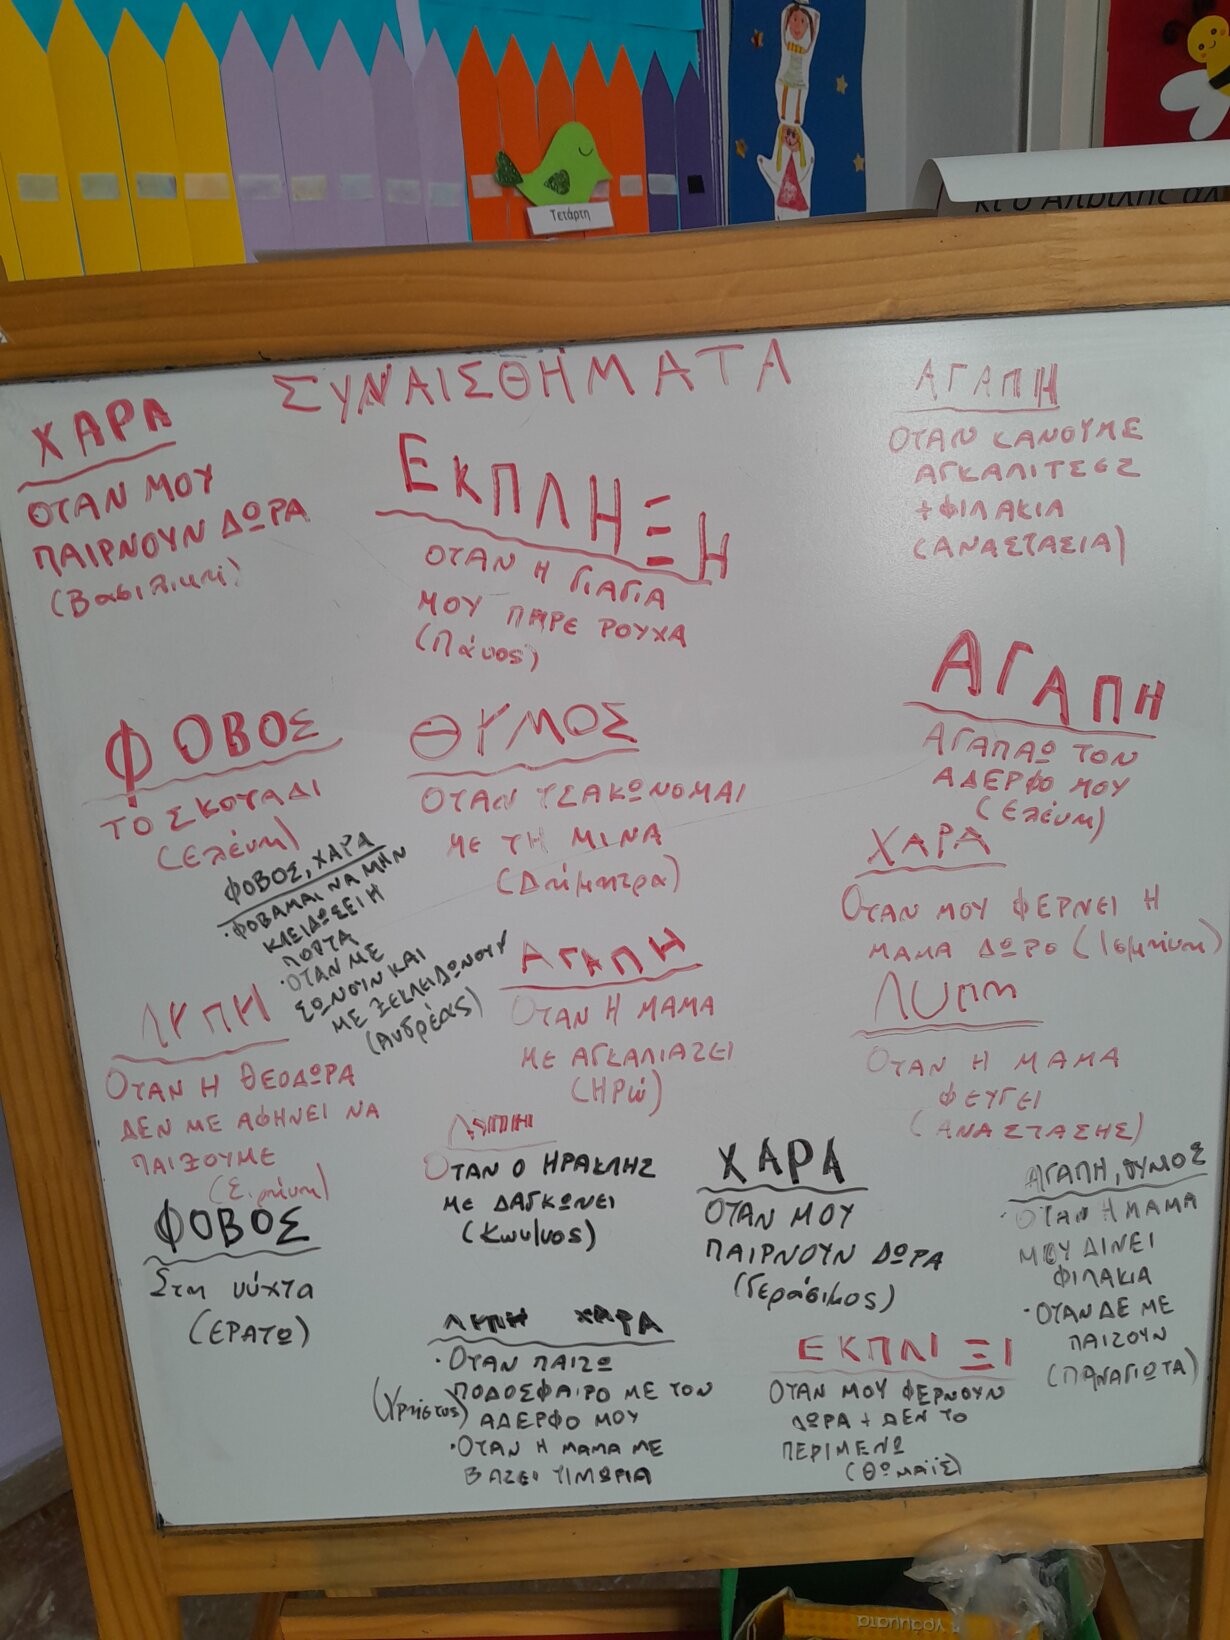 Τετάρτη
κι ο Απρίλης
ΣΥΝΑΙΣΘΗΜΑΤΑ
ΧΑΡΑ
ΟΤΑΝ ΜΟΥ
ΠΑΙΡΝΟΥΝ ΔΩΡΑ
(Βασιλική)
ΕΚΠΛΗΞΗ
ΟΤΑΝ Η ΓΙΑΓΙΑ
ΜΟΥ ΠΗΡΕ ΡΟΥΧΑ
(Πάνος)
ΑΓΑΠΗ
ΟΤΑΝ ΚΑΝΟΥΜΕ
ΑΓΚΑΛΙΤΣΕΣ
+ ΦΙΛΑΚΙΑ
(ΑΝΑΣΤΑΣΙΑ)
ΦΟΒΟΣ
ΤΟ ΣΚΟΤΑΔΙ
(Ελένη)
ΘΥΜΟΣ
ΟΤΑΝ ΤΣΑΚΩΝΟΜΑΙ
ΜΕ ΤΗ ΜΙΝΑ
(Δήμητρα)
ΑΓΑΠΗ
ΑΓΑΠΑΩ ΤΟΝ
ΑΔΕΡΦΟ ΜΟΥ
(Ελένη)
ΦΟΒΟΣ, ΧΑΡΑ
·ΦΟΒΑΜΑΙ ΝΑ ΜΗΝ
ΚΛΕΙΔΩΣΕΙ Η
ΠΟΡΤΑ
·ΟΤΑΝ ΜΕ
ΣΩΝΟΥΝ ΚΑΙ
ΜΕ ΞΕΚΛΕΙΔΩΝΟΥΝ
(Ανδρέας)
ΧΑΡΑ
ΟΤΑΝ ΜΟΥ ΦΕΡΝΕΙ Η
ΜΑΜΑ ΔΩΡΟ (Ισμήνη)
ΛΥΠΗ
ΟΤΑΝ Η ΘΕΟΔΩΡΑ
ΔΕΝ ΜΕ ΑΦΗΝΕΙ ΝΑ
ΠΑΙΞΟΥΜΕ
(Ειρήνη)
ΑΓΑΠΗ
ΟΤΑΝ Η ΜΑΜΑ
ΜΕ ΑΓΚΑΛΙΑΖΕΙ
(ΗΡώ)
ΛΥΠΗ
ΟΤΑΝ Η ΜΑΜΑ
ΦΕΥΓΕΙ
(ΑΝΑΣΤΑΣΗΣ)
ΦΟΒΟΣ
Στη νύχτα
(ΕΡΑΤΩ)
ΛΥΠΗ
ΟΤΑΝ Ο ΗΡΑΚΛΗΣ
ΜΕ ΔΑΓΚΩΝΕΙ
(Κων/νος)
ΧΑΡΑ
ΟΤΑΝ ΜΟΥ
ΠΑΙΡΝΟΥΝ ΔΩΡΑ
(Γεράσιμος)
ΑΓΑΠΗ, ΘΥΜΟΣ
·ΟΤΑΝ Η ΜΑΜΑ
ΜΟΥ ΔΙΝΕΙ
ΦΙΛΑΚΙΑ
·ΟΤΑΝ ΔΕ ΜΕ
ΠΑΙΖΟΥΝ
(ΠΑΝΑΓΙΩΤΑ)
ΛΥΠΗ ΧΑΡΑ
·ΟΤΑΝ ΠΑΙΖΩ
(Χρήστος) ΠΟΔΟΣΦΑΙΡΟ ΜΕ ΤΟΝ
ΑΔΕΡΦΟ ΜΟΥ
·ΟΤΑΝ Η ΜΑΜΑ ΜΕ
ΒΑΖΕΙ ΤΙΜΩΡΙΑ
ΕΚΠΛΙΞΙ
ΟΤΑΝ ΜΟΥ ΦΕΡΝΟΥΝ
ΔΩΡΑ + ΔΕΝ ΤΟ
ΠΕΡΙΜΕΝΩ
(ΘΩΜΑΪΣ)
γράμματα